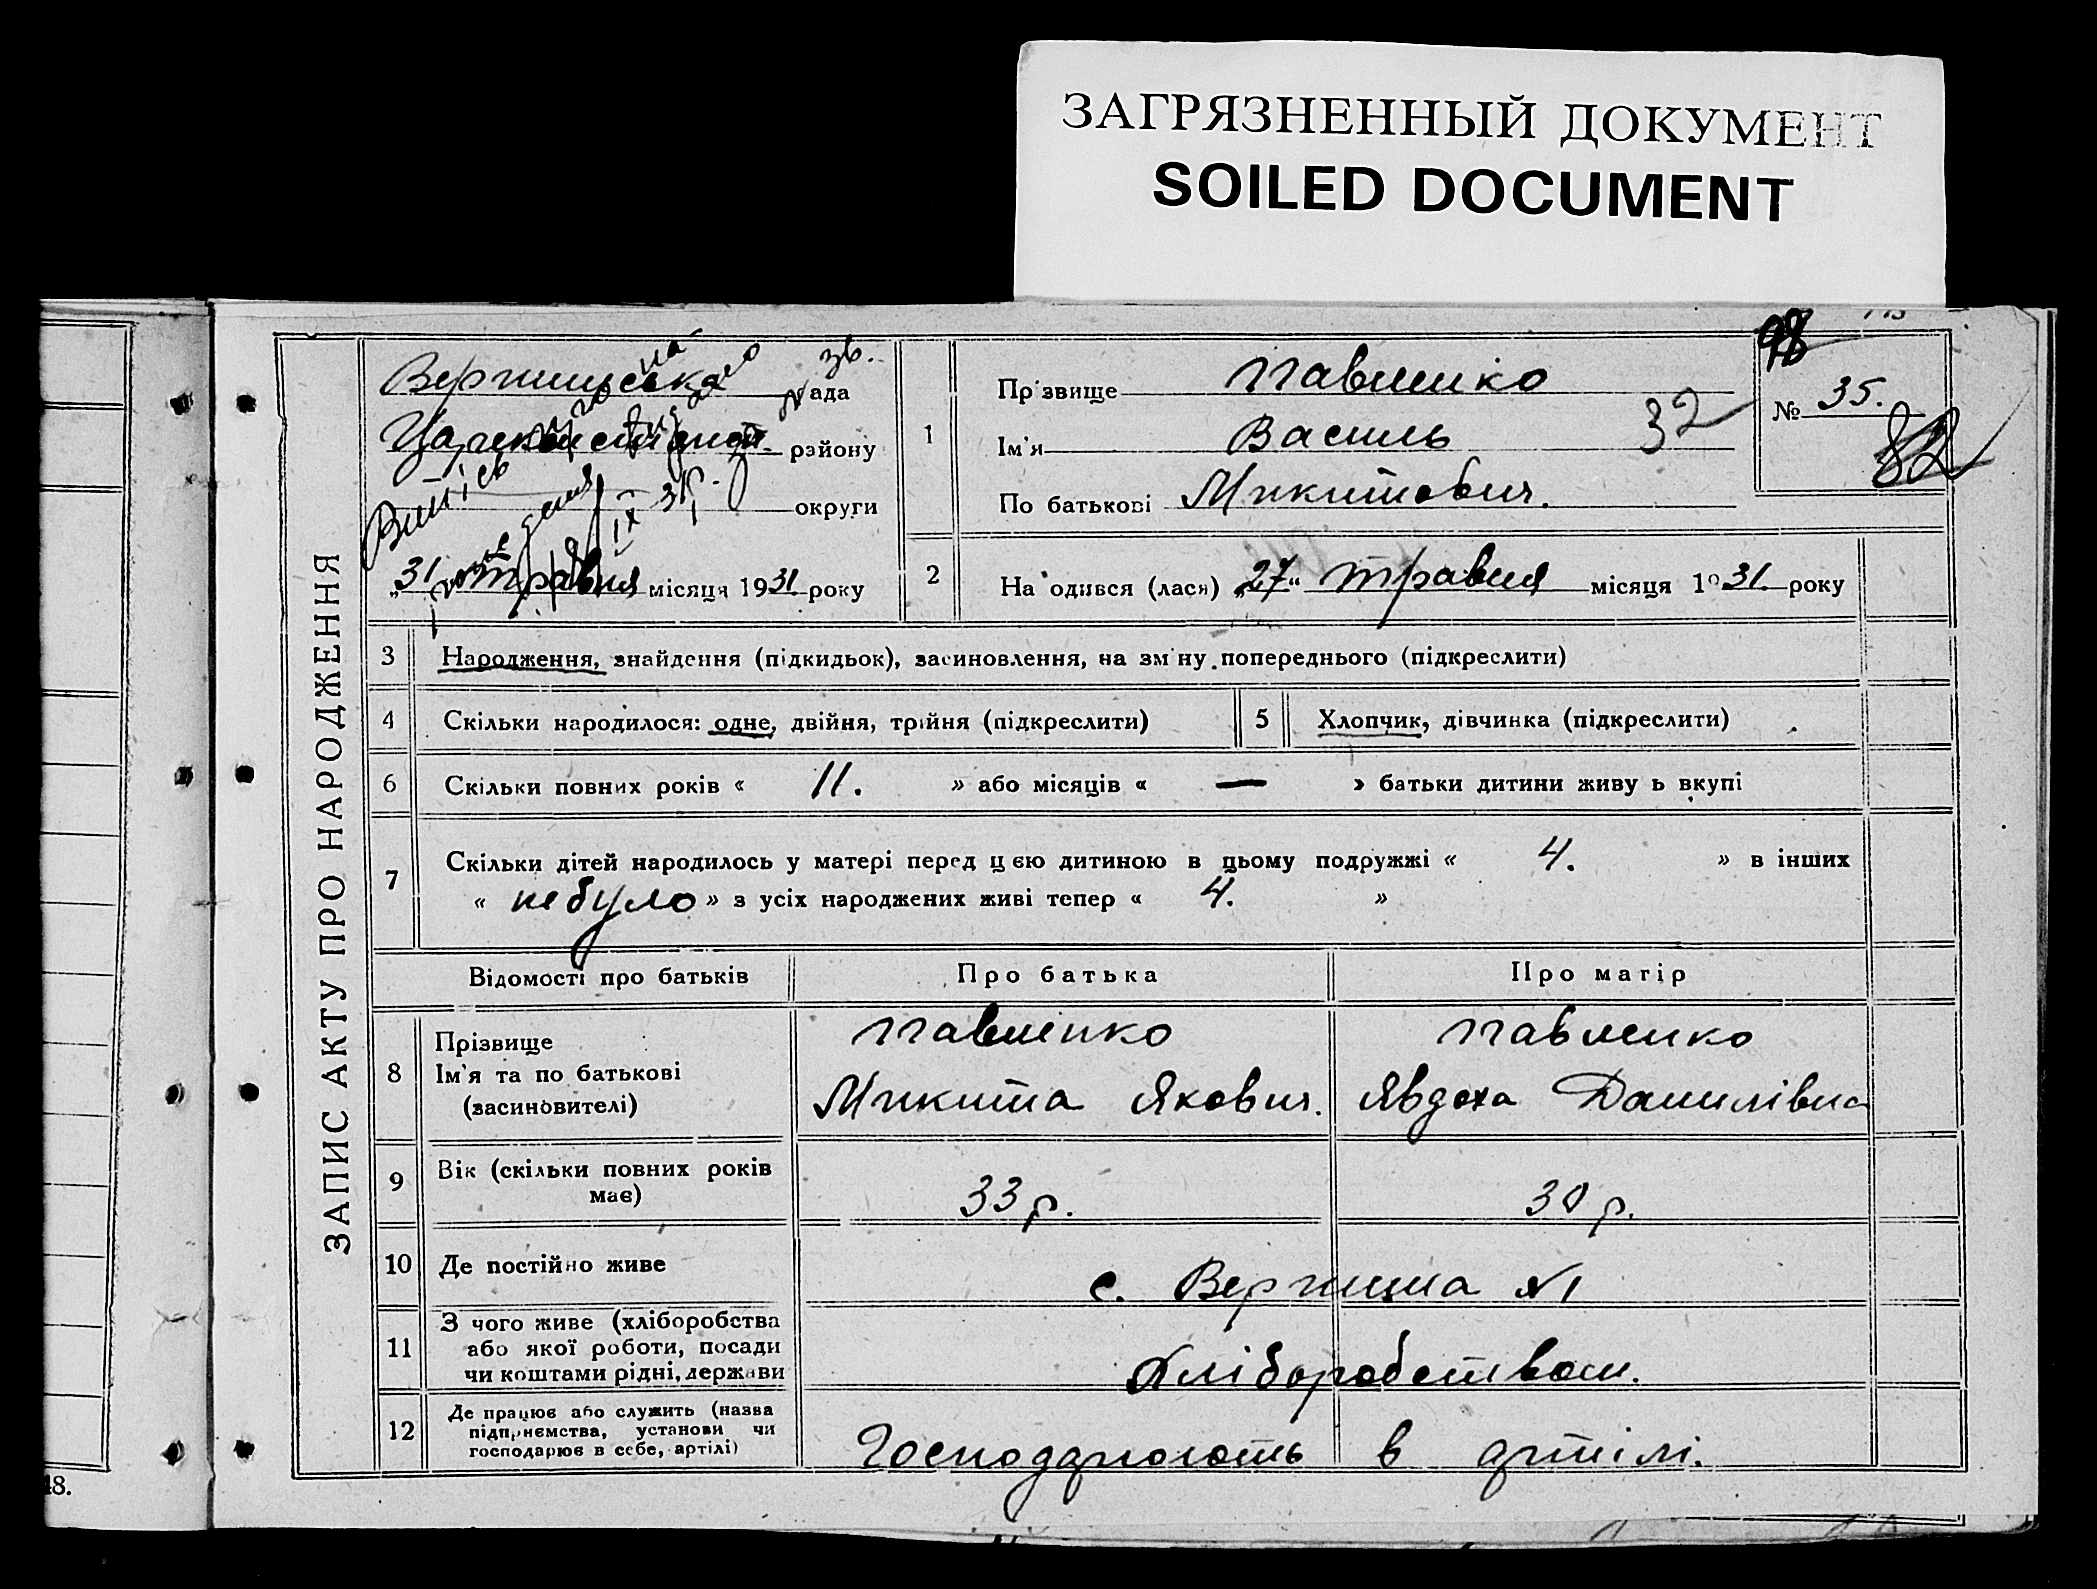 ЗАГРЯЗНЕННЫЙ ДОКУМЕНТ
SOILED DOCUMENT
ЗАПИС АКТУ ПРО НАРОДЖЕННЯ
рада
району
округи
„31 травня місяця 1931 року
1
Прізвище Павленко
Ім'я Василь
32
По батькові Микитович.
98
№ 35.
82
2
Народився (лася) „27" травня місяця 1931 року
3 Народження, знайдення (підкидьок), засиновлення, на зміну попереднього (підкреслити)
4 Скільки народилося: одне, двійня, трійня (підкреслити)
5 Хлопчик, дівчинка (підкреслити)
6 Скільки повних років « 11. » або місяців « — » батьки дитини живуть вкупі
7 Скільки дітей народилось у матері перед цією дитиною в цьому подружжі « 4. » в інших
« небуло » з усіх народжених живі тепер « 4. »
Відомості про батьків Про батька Про матір
8 Прізвище Павленко Павленко
Ім'я та по батькові Микита Якович. Явдоха Данилівна
(засиновителі)
9 Вік (скільки повних років
має) 33 р. 30 р.
10 Де постійно живе с. №1
11 З чого живе (хліборобства
або якої роботи, посади
чи коштами рідні, держави Хліборобством.
12 Де працює або служить (назва
підприємства, установи чи
господарює в себе, артілі) Господарюють в артілі.
48.